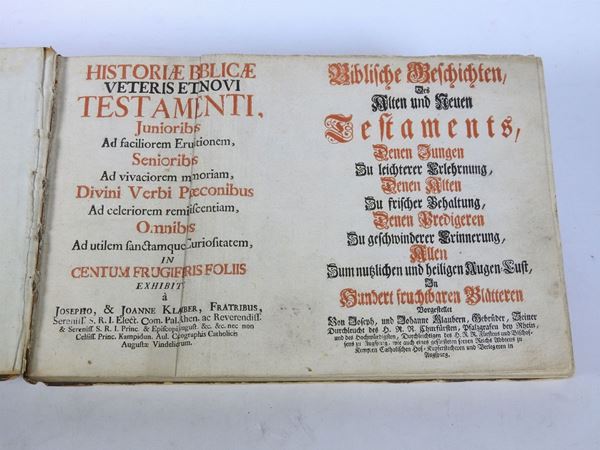 HISTORIÆ BIBLICÆ
VETERIS ET NOVI
TESTAMENTI,
Junioribs
Ad faciliorem Eruditionem,
Senioribs
Ad vivaciorem memoriam,
Divini Verbi Præconibus
Ad celeriorem reminiscentiam,
Omnibs
Ad utilem sanctamque Curiositatem,
IN
CENTUM FRUGIFERIS FOLIIS
EXHIBITÆ
à
JOSEPHO, & JOANNE KLAUBER, FRATRIBUS,
Sereniss. S. R. I. Elect. Com. Pal. Rhen. ac Reverendiss.
& Sereniss S. R. I. Princ. & Episcopi August &c. &c. nec non
Celsiss. Princ. Kampidun. Aul. Chalcographis Catholicis
Augustæ Vindelicorum.
Biblische Geschichten,
Des
Alten und Neuen
Testaments,
Denen Jungen
Zu leichterer Erlehrnung,
Denen Alten
Zu frischer Behaltung,
Denen Predigeren
Zu geschwinderer Erinnerung,
Allen
Zum nutzlichen und heiligen Augen-Lust,
In
Hundert fruchtbaren Blätteren
Vorgestellet
Von Joseph, und Johanne Klaubern, Gebrüder, Seiner
Durchleucht des H. R. R. Churfürsten, Pfalzgrafen bey Rhein,
und des Hochwürdigsten, Durchleuchtigen des H. R. R. Fürstens und Bischof-
fens zu Augspurg, wie auch eines gefürsteten freyen Reichs Abbtens zu
Kempten Catholischen Hof-Kupferstecheren und Verlegeren in
Augspurg.